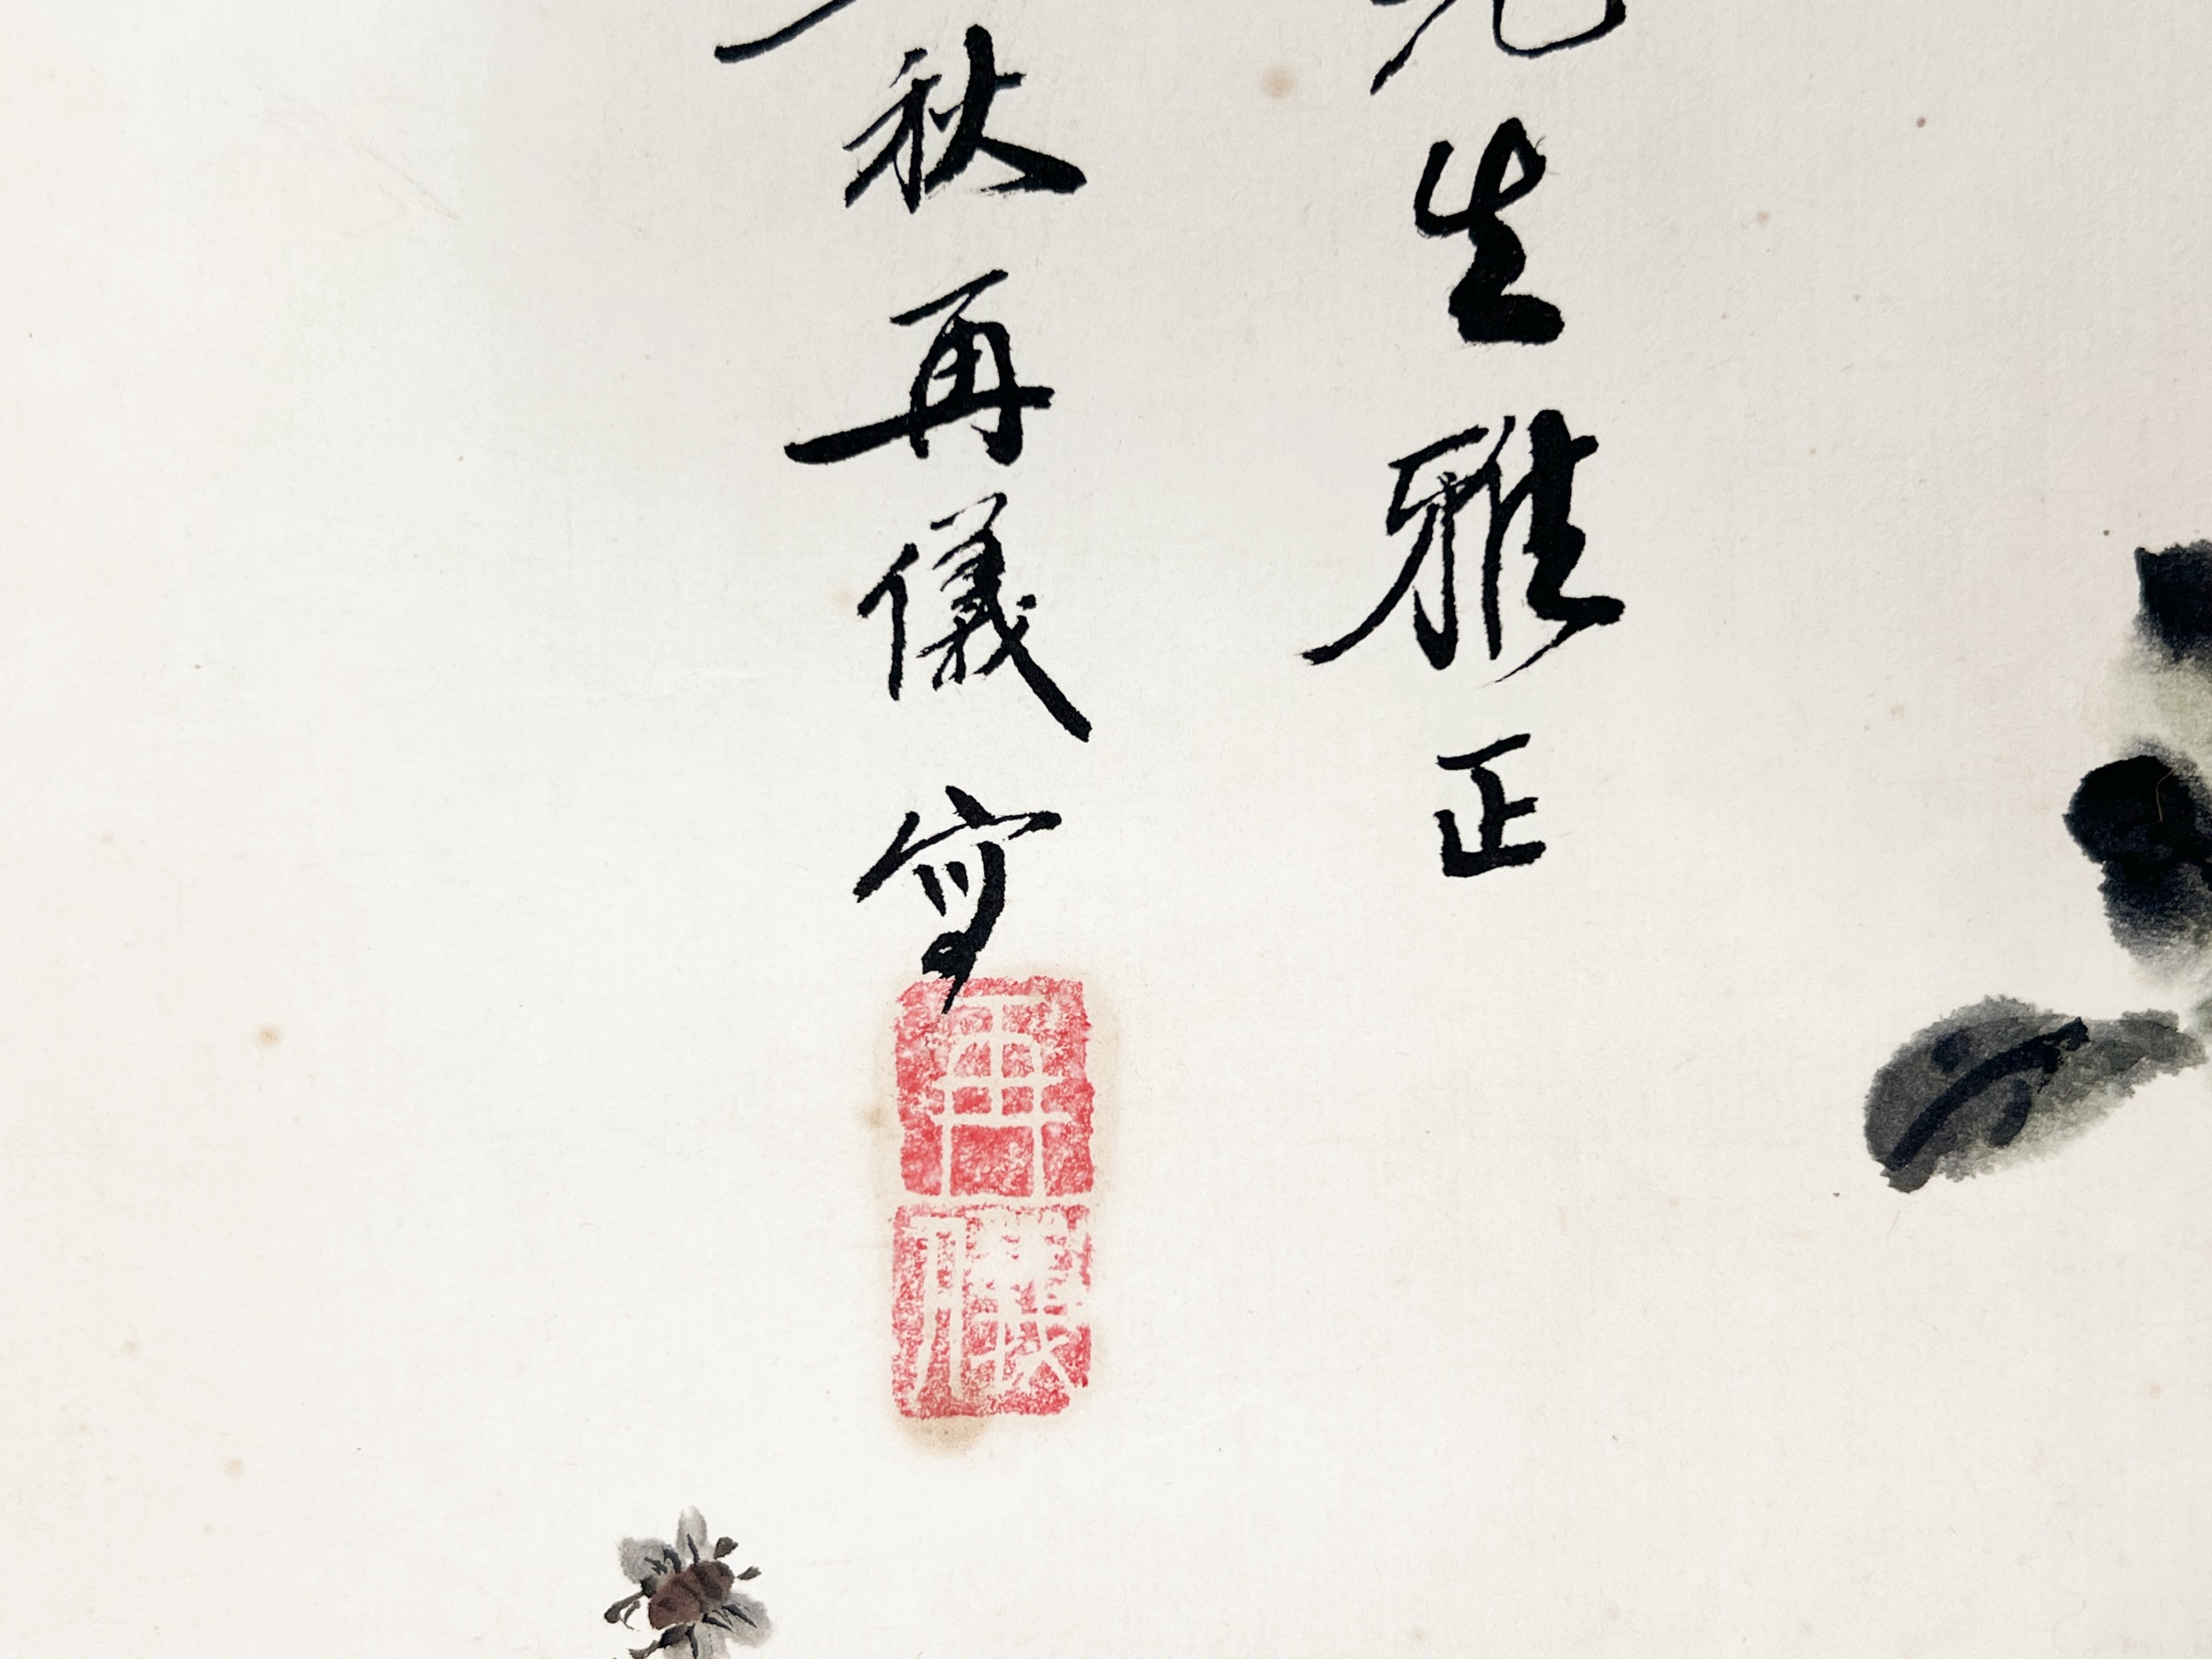 先生雅正
秋再儀寫
再儀